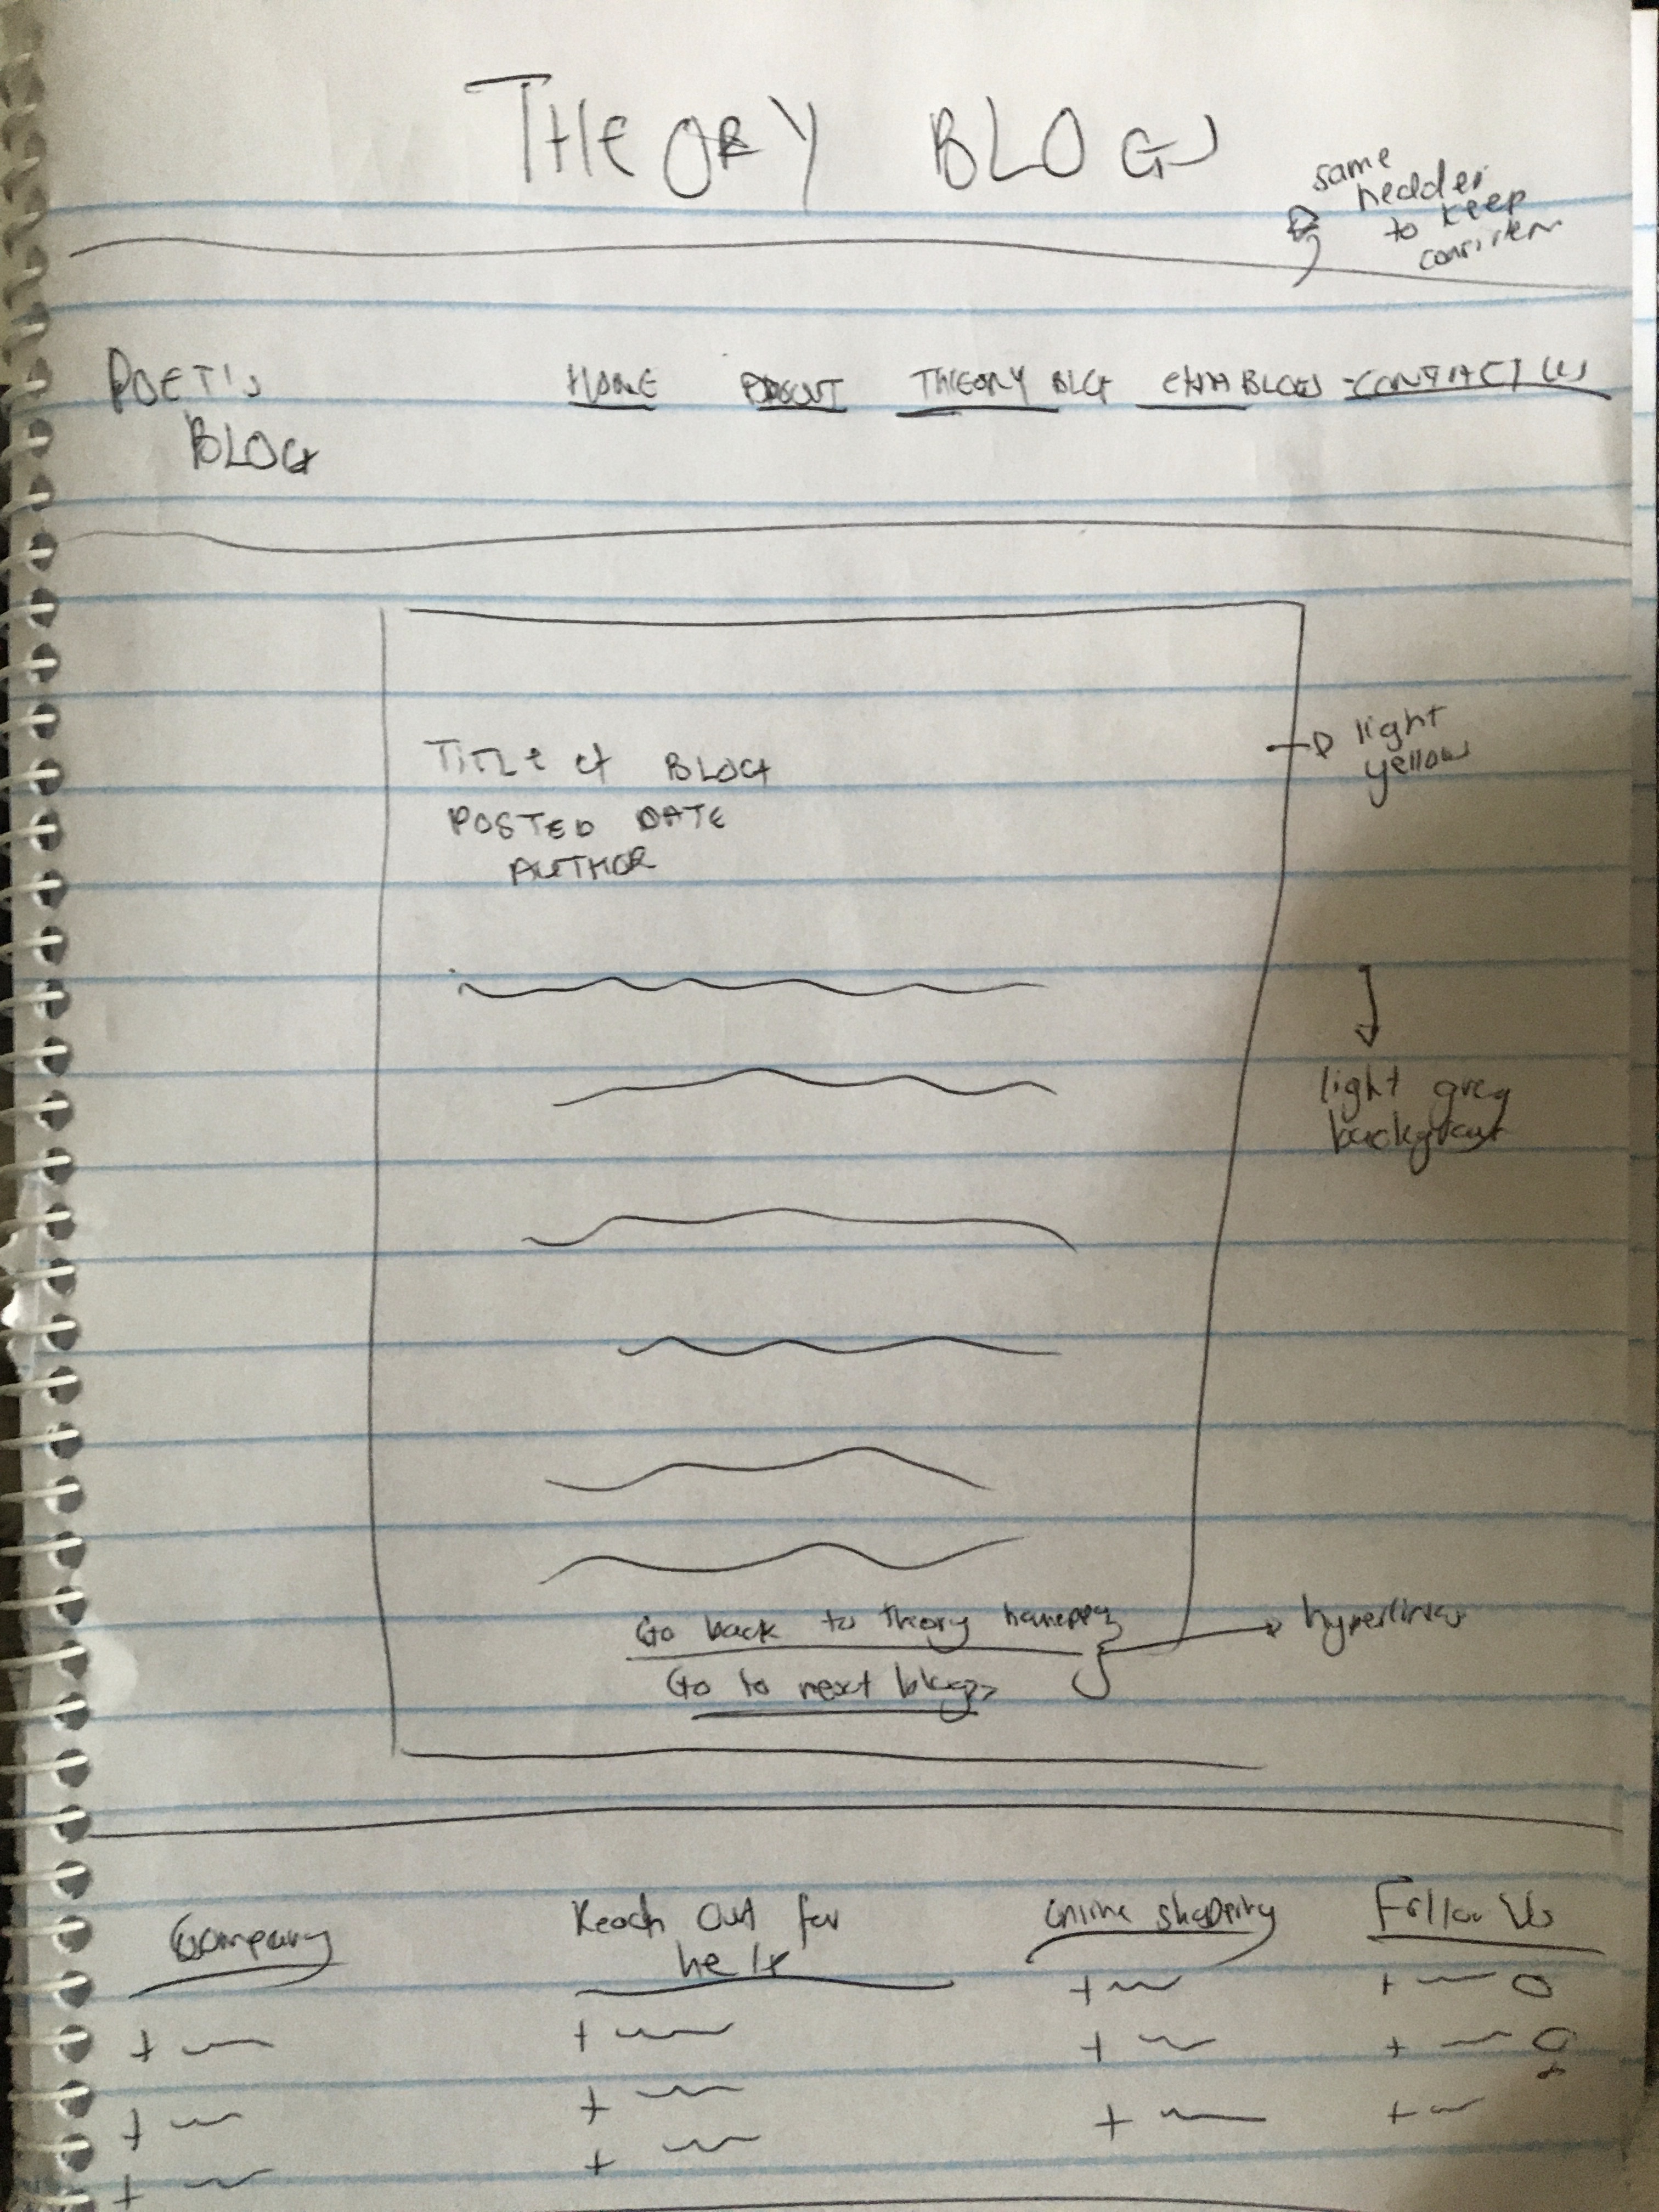 THEORY BLOG
same
header
to keep
consisten
POET'S
BLOG
HOME ABOUT THEORY BLG BLOGS CONTACT US
TITLE of BLOG
POSTED DATE
AUTHOR
light
yellow
light grey
Go back to theory
Go to next blog
hyperlinks
Company
Reach Out for
help
online shopping
Follow Us